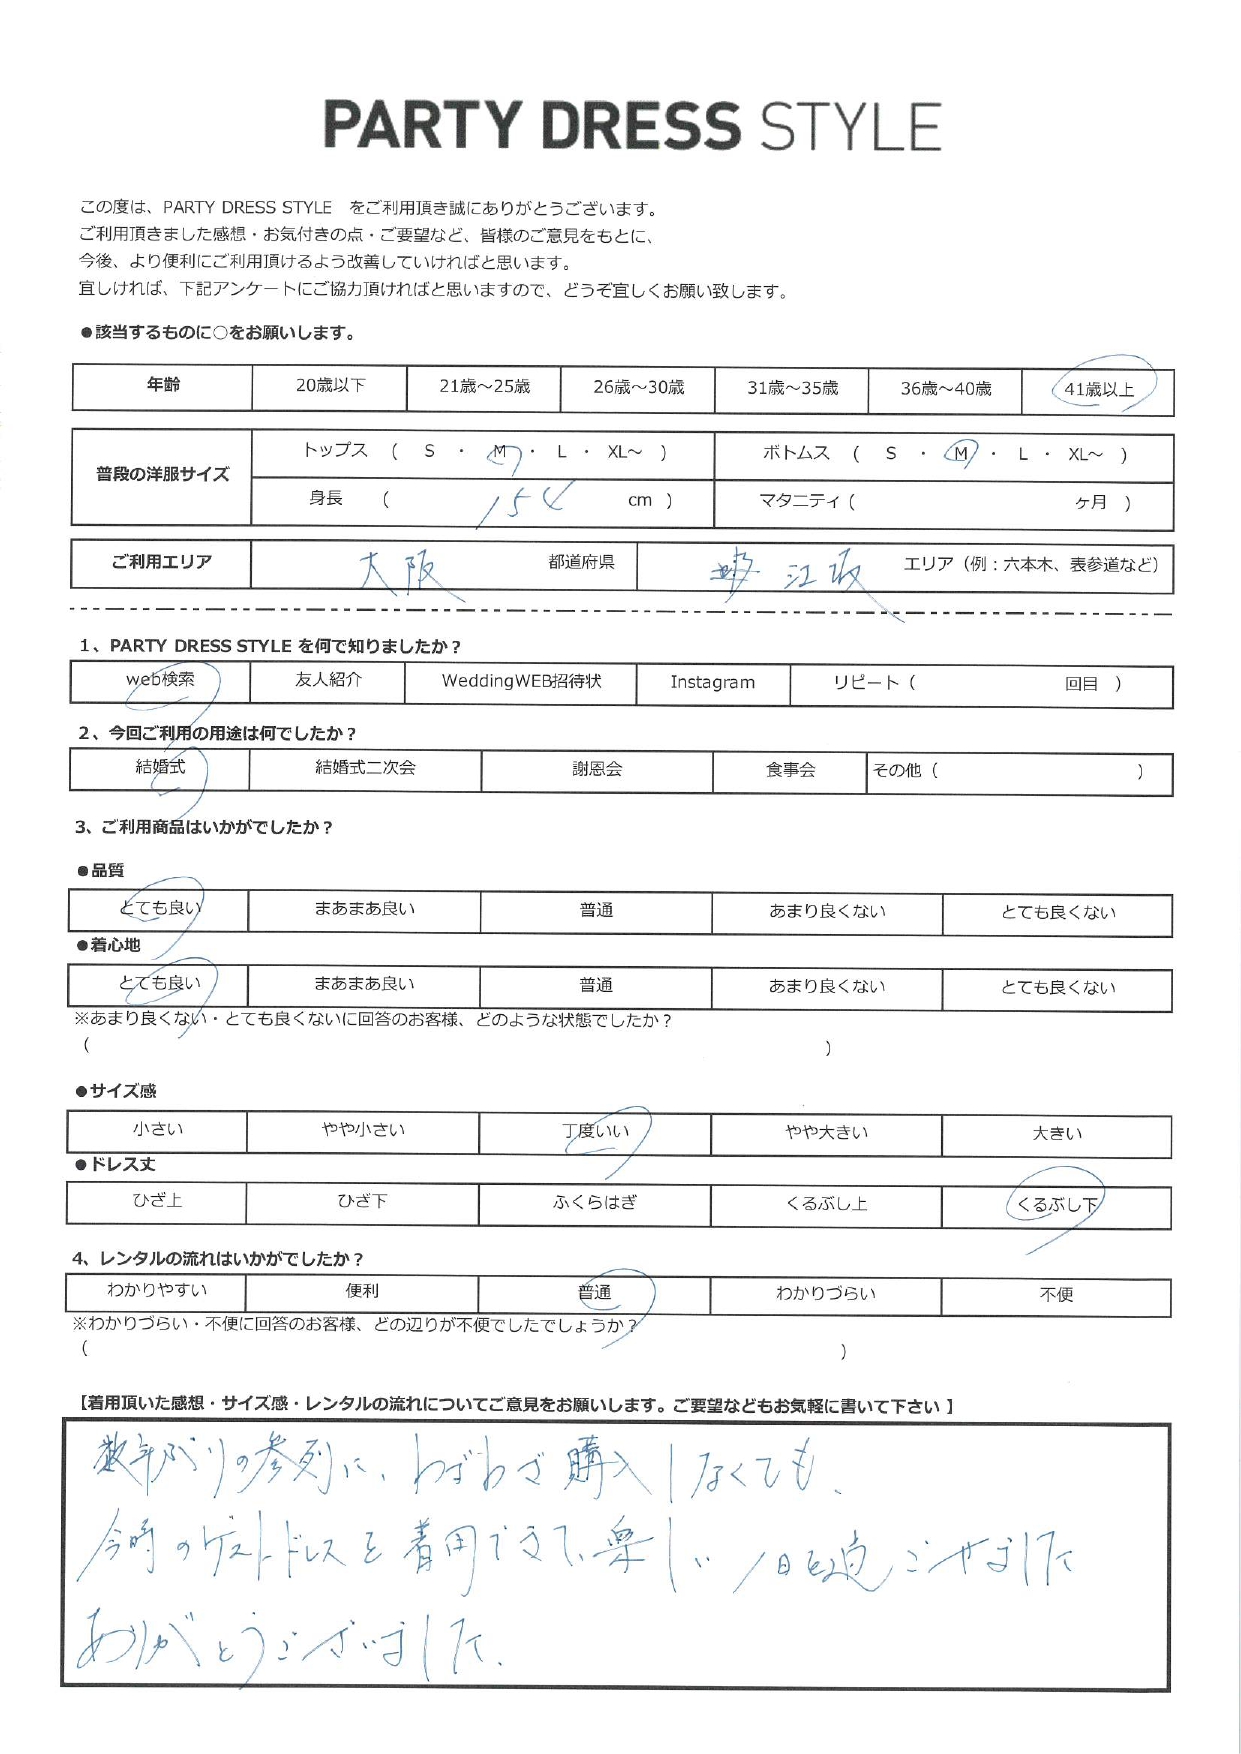 PARTY DRESS STYLE
この度は、PARTY DRESS STYLE　をご利用頂き誠にありがとうございます。
ご利用頂きました感想・お気付きの点・ご要望など、皆様のご意見をもとに、
今後、より便利にご利用頂けるよう改善していければと思います。
宜しければ、下記アンケートにご協力頂ければと思いますので、どうぞ宜しくお願い致します。
●該当するものに○をお願いします。
年齢 20歳以下 21歳～25歳 26歳～30歳 31歳～35歳 36歳～40歳 41歳以上
普段の洋服サイズ
トップス （ S ・ M ・ L ・ XL～ ） ボトムス （ S ・ M ・ L ・ XL～ ）
身長 （ 154 cm ） マタニティ（ ヶ月 ）
ご利用エリア 大阪 都道府県 江坂 エリア（例：六本木、表参道など）
1、PARTY DRESS STYLE を何で知りましたか？
web検索 友人紹介 WeddingWEB招待状 Instagram リピート（ 回目 ）
2、今回ご利用の用途は何でしたか？
結婚式 結婚式二次会 謝恩会 食事会 その他（ ）
3、ご利用商品はいかがでしたか？
●品質
とても良い まあまあ良い 普通 あまり良くない とても良くない
●着心地
とても良い まあまあ良い 普通 あまり良くない とても良くない
※あまり良くない・とても良くないに回答のお客様、どのような状態でしたか？
（ ）
●サイズ感
小さい やや小さい 丁度いい やや大きい 大きい
●ドレス丈
ひざ上 ひざ下 ふくらはぎ くるぶし上 くるぶし下
4、レンタルの流れはいかがでしたか？
わかりやすい 便利 普通 わかりづらい 不便
※わかりづらい・不便に回答のお客様、どの辺りが不便でしたでしょうか？
（ ）
【着用頂いた感想・サイズ感・レンタルの流れについてご意見をお願いします。ご要望などもお気軽に書いて下さい 】
数年ぶりの参列に、わざわざ購入しなくても、
今時のゲストドレスを着用できて、楽しい1日を過ごせました
ありがとうございました。